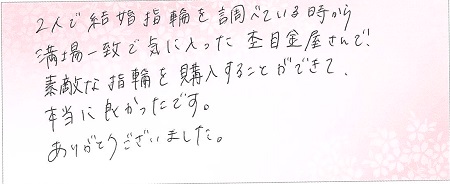 2人で結婚指輪を調べている時から
満場一致で気に入った杢目金屋さんで!
素敵な指輪を購入することができて、
本当に良かったです。
ありがとうございました。